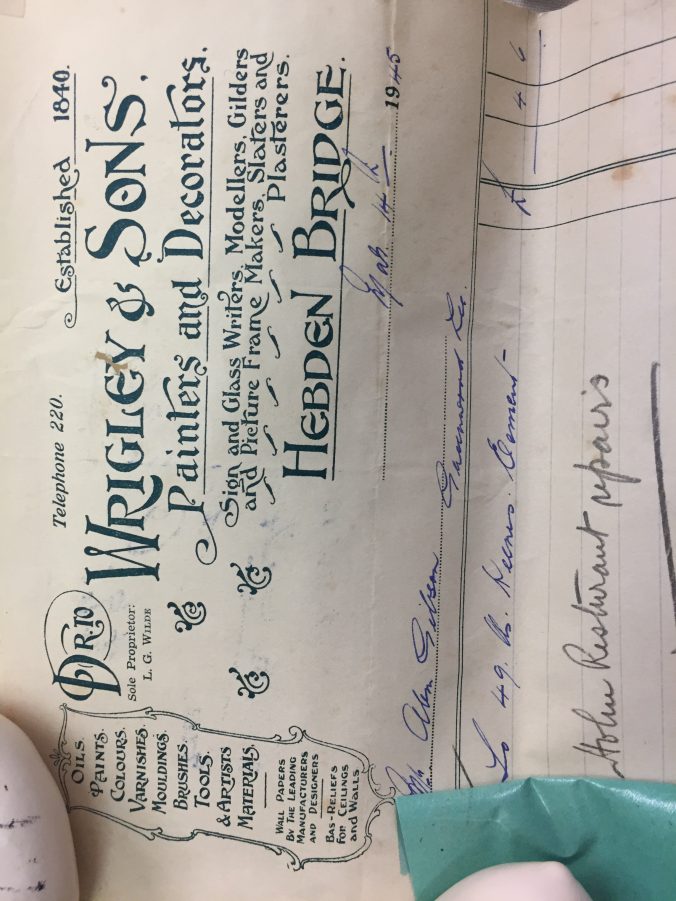 Telephone 220.
Established 1840.
Dr. to
WRIGLEY & SONS.
Sole Proprietor:
L. G. WILDE
Painters and Decorators.
Sign and Glass Writers, Modellers, Gilders
and Picture Frame Makers, Slaters and
Plasterers.
HEBDEN BRIDGE.
OILS.
PAINTS.
COLOURS.
VARNISHES.
MOULDINGS.
BRUSHES.
TOOLS.
& ARTISTS
MATERIALS.
WALL PAPERS
BY THE LEADING
MANUFACTURERS
AND DESIGNERS
BAS-RELIEFS
FOR CEILINGS
and WALLS
Mar 14th 1945
Abm Gibson
To 49 lbs. Keenes. Cement-
£ 4 6
Holm Resturant repairs